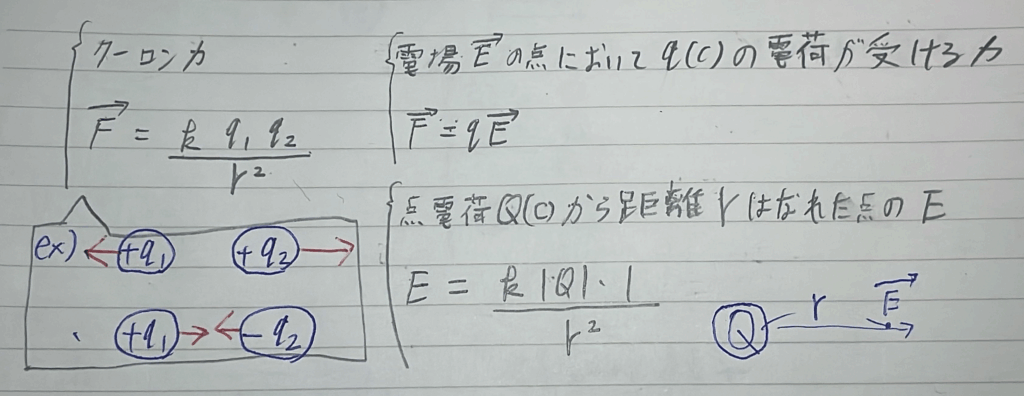 クーロン力
F→ = k q₁ q₂ / r²
ex) +q₁ +q₂
+q₁ -q₂
電場E→の点においてq(C)の電荷が受ける力
F→ = qE→
点電荷Q(C)から距離rはなれた点のE
E = k|Q|・1 / r²
Q r E→